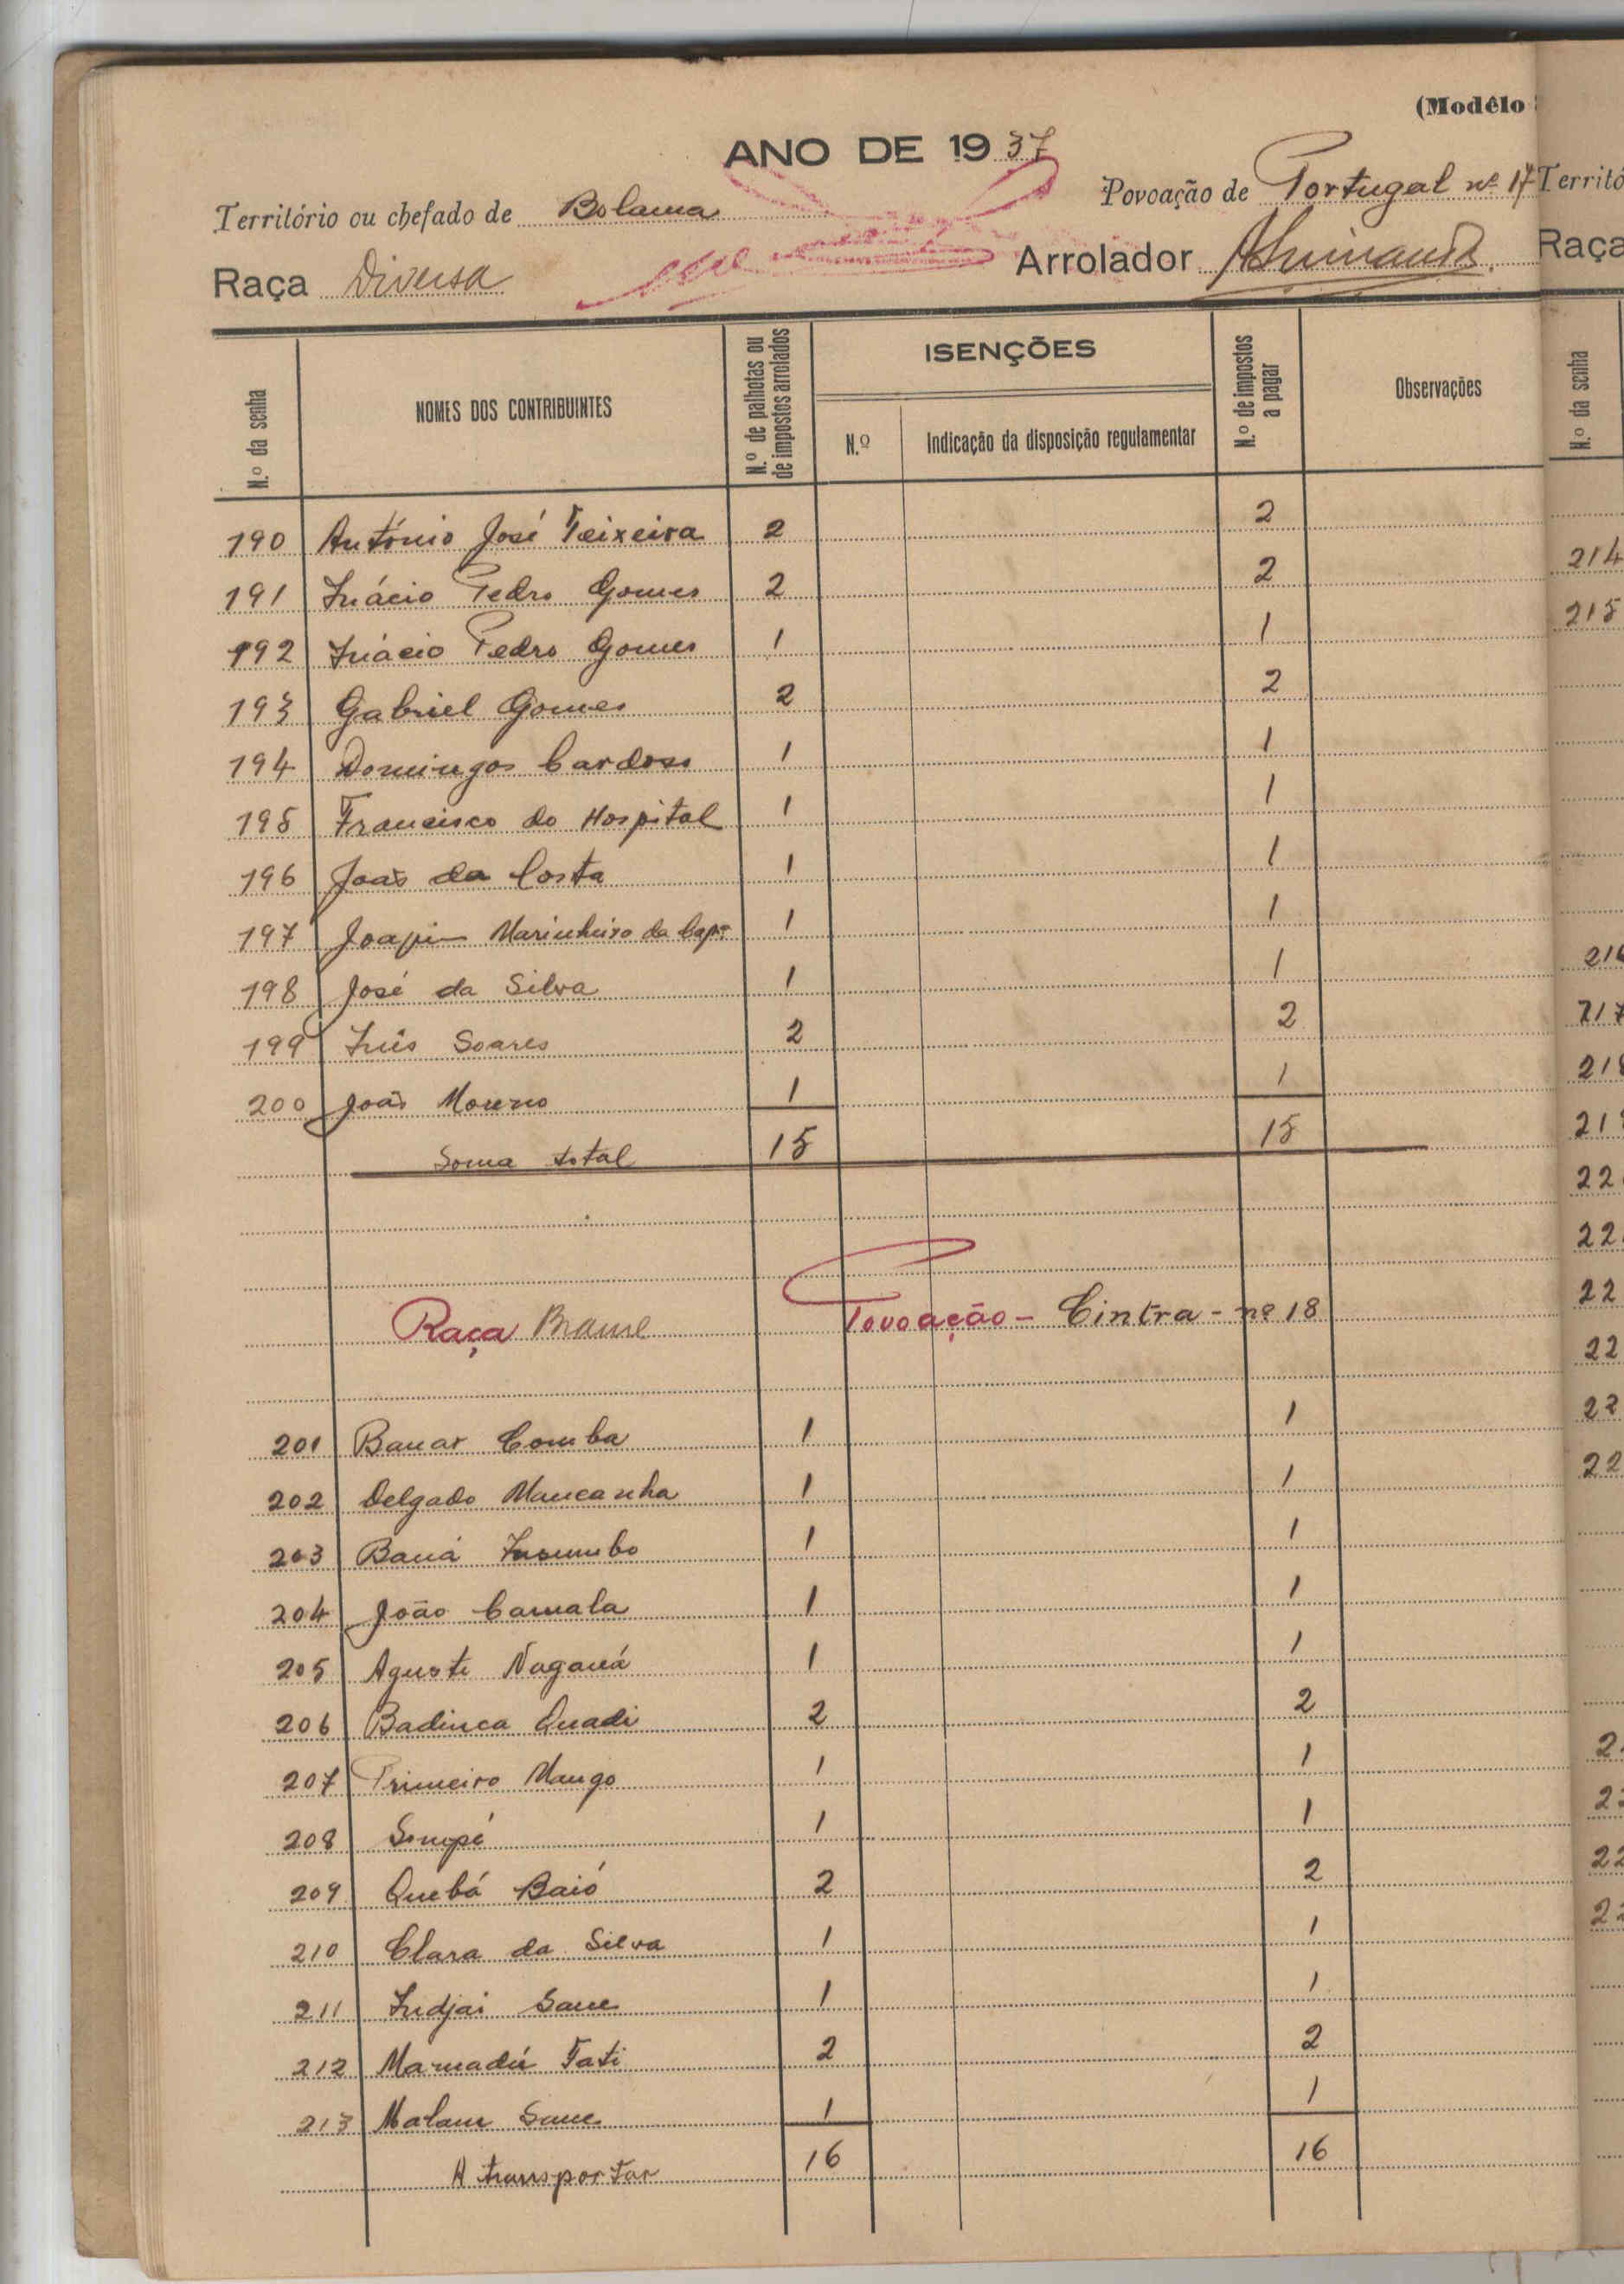 (Modêlo
ANO DE 1937
Território ou chefado de Bolama Povoação de Portugal nº 17
Raça Diversa Arrolador
N.º da senha NOMES DOS CONTRIBUINTES N.º de palhotas ou de impostos arrolados ISENÇÕES N.º Indicação da disposição regulamentar N.º de impostos a pagar Observações
190 António José Teixeira 2 2
191 Inácio Pedro Gomes 2 2
192 Inácio Pedro Gomes 1 1
193 Gabriel Gomes 2 2
194 Domingos Cardoso 1 1
195 Francisco do Hospital 1 1
196 João da Costa 1 1
197 Joaqim Marinheiro da Capª 1 1
198 José da Silva 1 1
199 Luís Soares 2 2
200 João Moreno 1 1
Soma total 15 15
Raça Brame Povoação - Cintra - nº 18
201 Banar Comba 1 1
202 Delgado Mancanha 1 1
203 Baná 1 1
204 João Camala 1 1
205 Aguste Naganá 1 1
206 Badinca Quadi 2 2
207 Primeiro Mango 1 1
208 Sompé 1 1
209 Quebá Baió 2 2
210 Clara da Silva 1 1
211 Indjai Sane 1 1
212 Mamadú Fati 2 2
213 Malam Sane 1 1
A transportar 16 16
Territó
Raça
N.º da senha
214
215